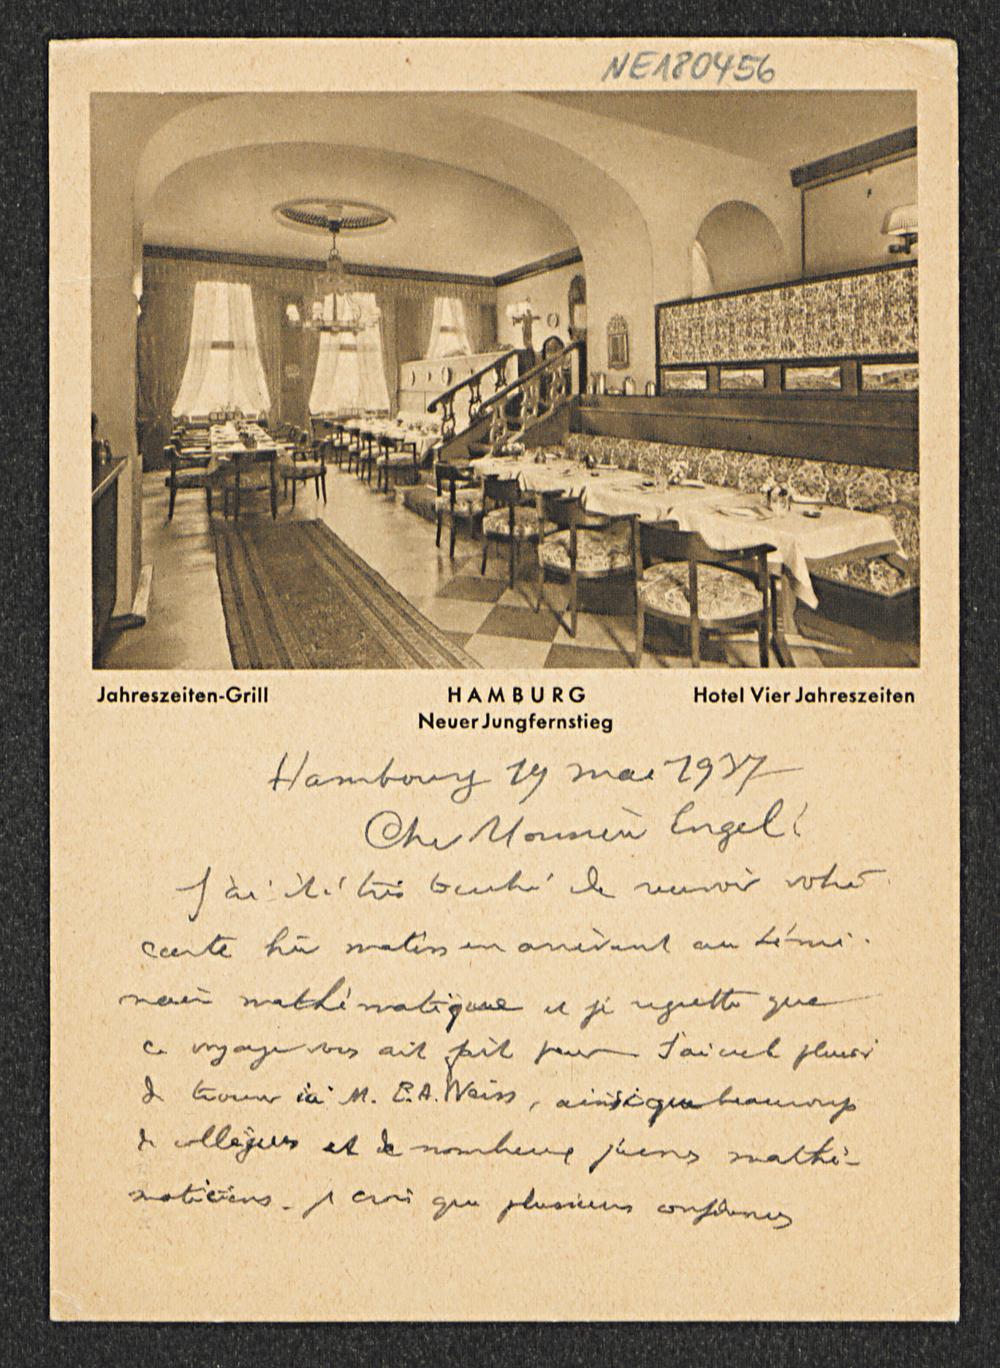 NE180456
Jahreszeiten-Grill
HAMBURG
Hotel Vier Jahreszeiten
Neuer Jungfernstieg
Hambourg 19 mai 1937
Cher Monsieur Engel!
J'ai été très touché de recevoir votre
carte hier matin en arrivant au sémi-
naire mathématique et je regrette que
ce voyage vous ait fait peur. J'ai eu le plaisir
de trouver ici M. E.A. Weiss, ainsi que beaucoup
de collègues et de nombreux jeunes mathé-
maticiens. je crois que plusieurs conférences